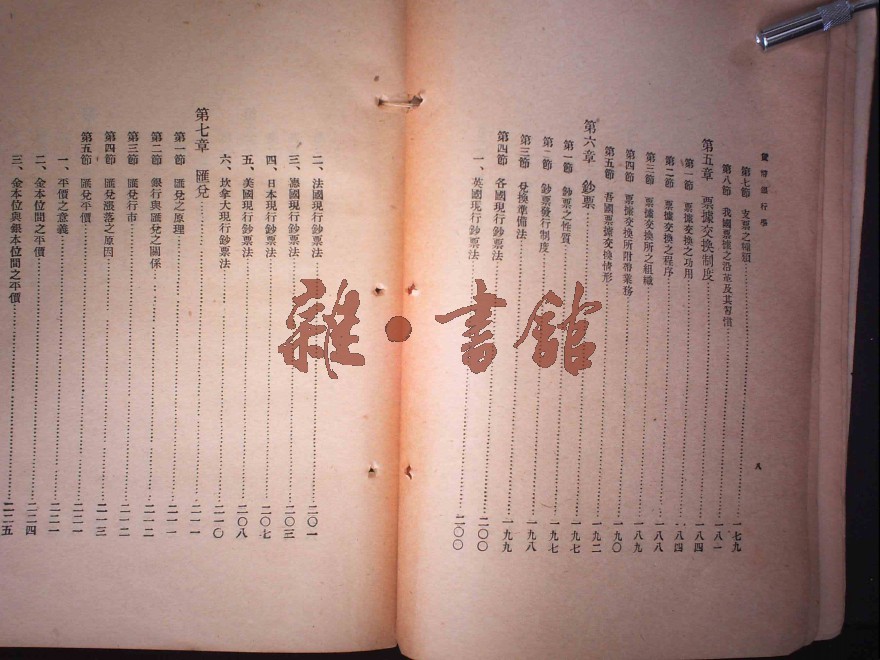 貨幣銀行學
八
第七節 支票之種類……一七九
第八節 我國票據之沿革及其習慣……一八一
第五章 票據交換制度……一八四
第一節 票據交換之功用……一八四
第二節 票據交換之程序……一八八
第三節 票據交換所之組織……一八九
第四節 票據交換所附帶業務……一九〇
第五節 吾國票據交換情形……一九二
第六章 鈔票……一九七
第一節 鈔票之性質……一九七
第二節 鈔票發行制度……一九八
第三節 兌換準備法……一九九
第四節 各國現行鈔票法……二〇〇
一、英國現行鈔票法……二〇〇
二、法國現行鈔票法……二〇一
三、德國現行鈔票法……二〇三
四、日本現行鈔票法……二〇七
五、美國現行鈔票法……二〇八
六、坎拿大現行鈔票法……二一〇
第七章 匯兌……二一一
第一節 匯兌之原理……二一一
第二節 銀行與匯兌之關係……二一二
第三節 匯兌行市……二一二
第四節 匯兌漲落之原因……二一三
第五節 匯兌平價……二二一
一、平價之意義……二二一
二、金本位間之平價……二二四
三、金本位與銀本位間之平價……二二五
雜·書館